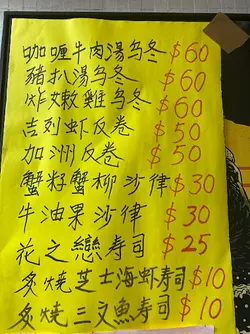 咖喱牛肉湯乌冬 $60
豬扒湯乌冬 $60
炸嫩雞乌冬 $60
吉列虾反卷 $50
加洲反卷 $50
蟹籽蟹柳沙律 $30
牛油果沙律 $30
花之戀寿司 $25
炙燒芝士海虾寿司 $10
炙燒三文魚寿司 $10